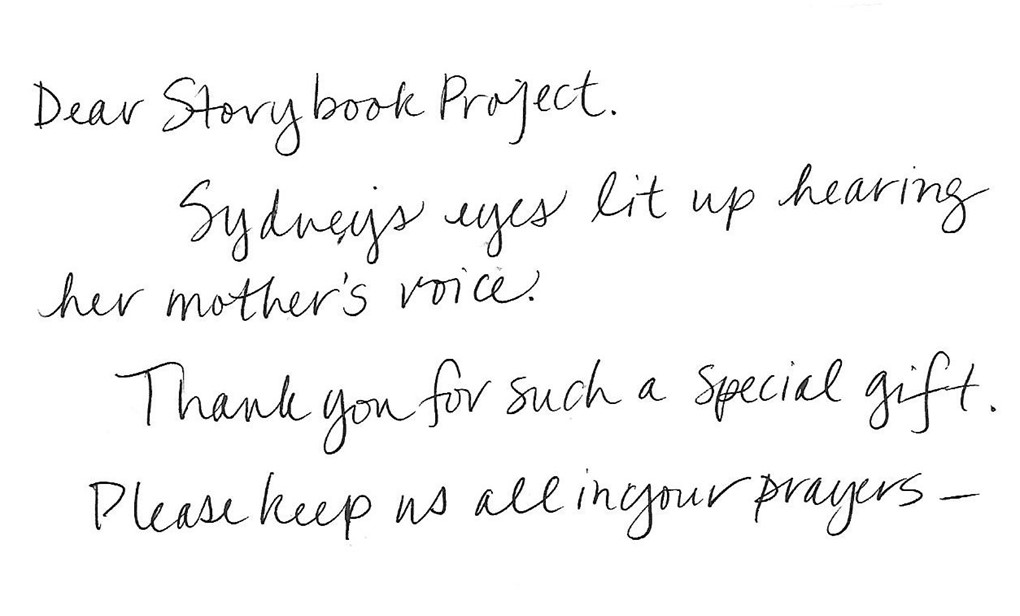 Dear Storybook Project.
Sydneys eyes lit up hearing
her mother's voice.
Thank you for such a special gift.
Please keep us all in your prayers –